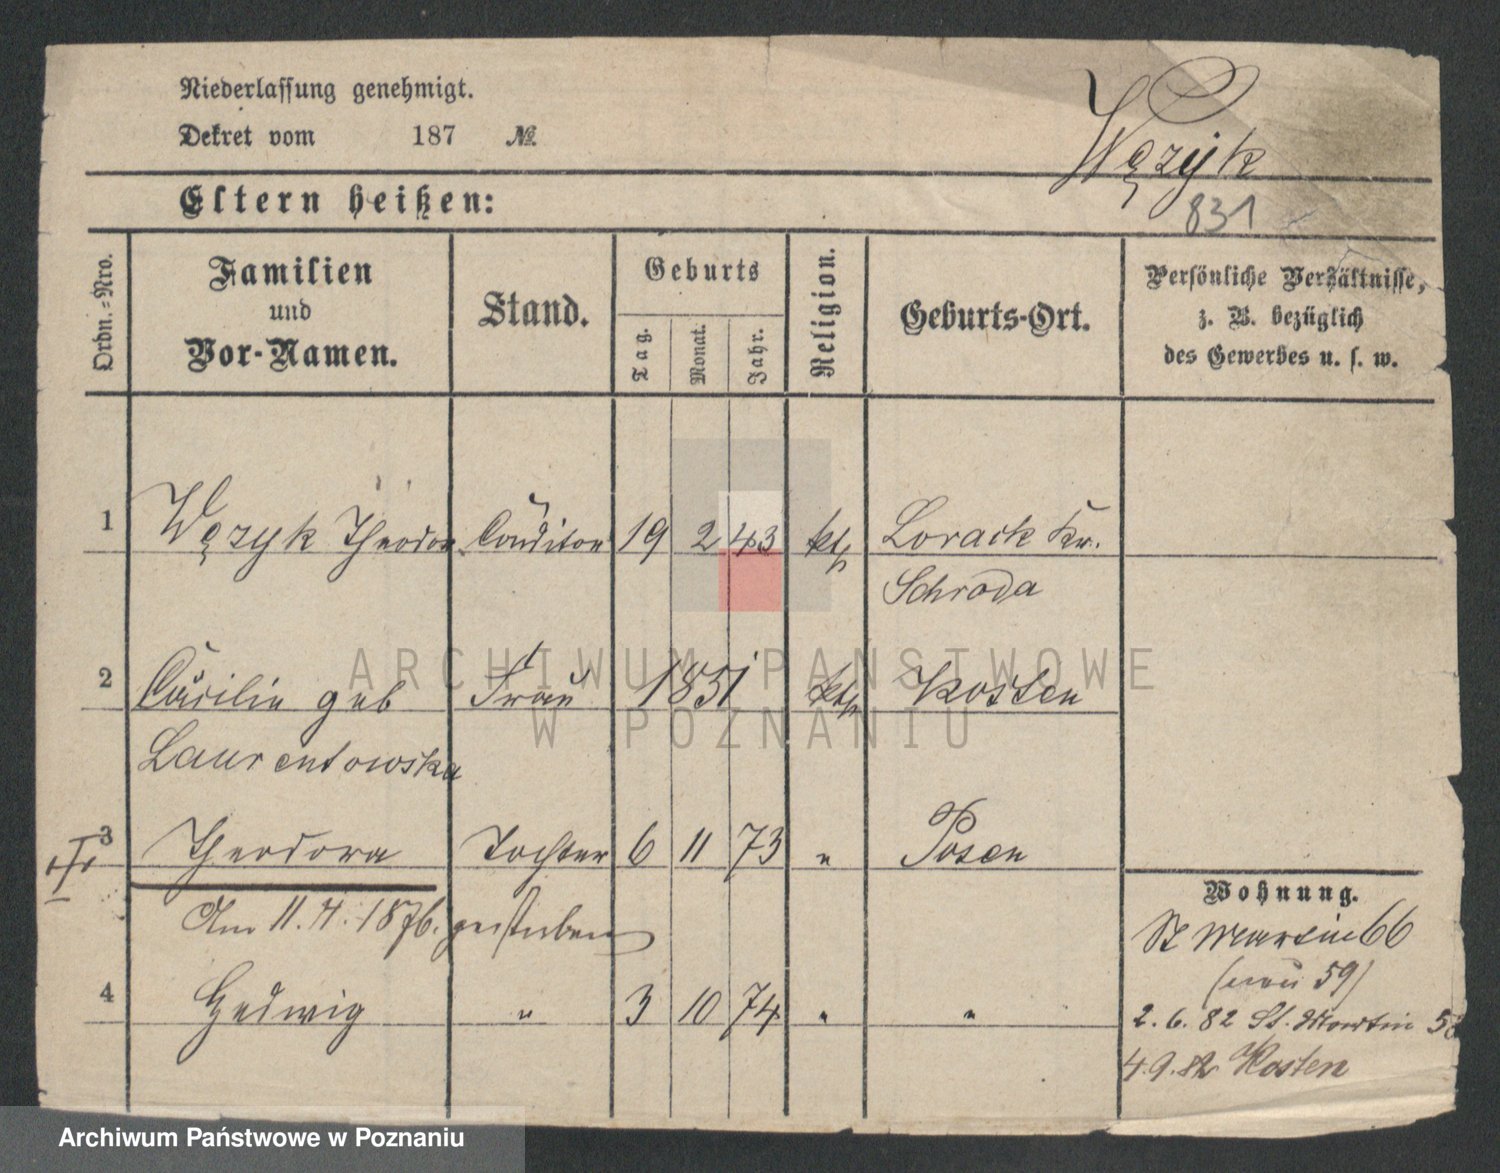 Niederlassung genehmigt.
Dekret vom 187 №
Wężyk
831
Eltern heißen:
Ordn.-Nro.
Familien und Vor-Namen.
Stand.
Geburts
Tag. Monat. Jahr.
Religion.
Geburts-Ort.
Persönliche Verhältnisse, z. B. bezüglich des Gewerbes u. s. w.
1 Wężyk Theodor Conditor 19 2 43 kth Lorack Kr.
Schroda
2 Cäcilia geb Frau 1851 kth Kosten
Laurentowska
3 Theodora Tochter 6 11 73 " Posen
Am 11.4.1876. gestorben
4 Hedwig " 3 10 74 " "
Wohnung.
St Martin 66
(neu 59)
2.6.82 St. Martin 58
4.9.82 Kosten
ARCHIWUM PAŃSTWOWE
W POZNANIU
Archiwum Państwowe w Poznaniu